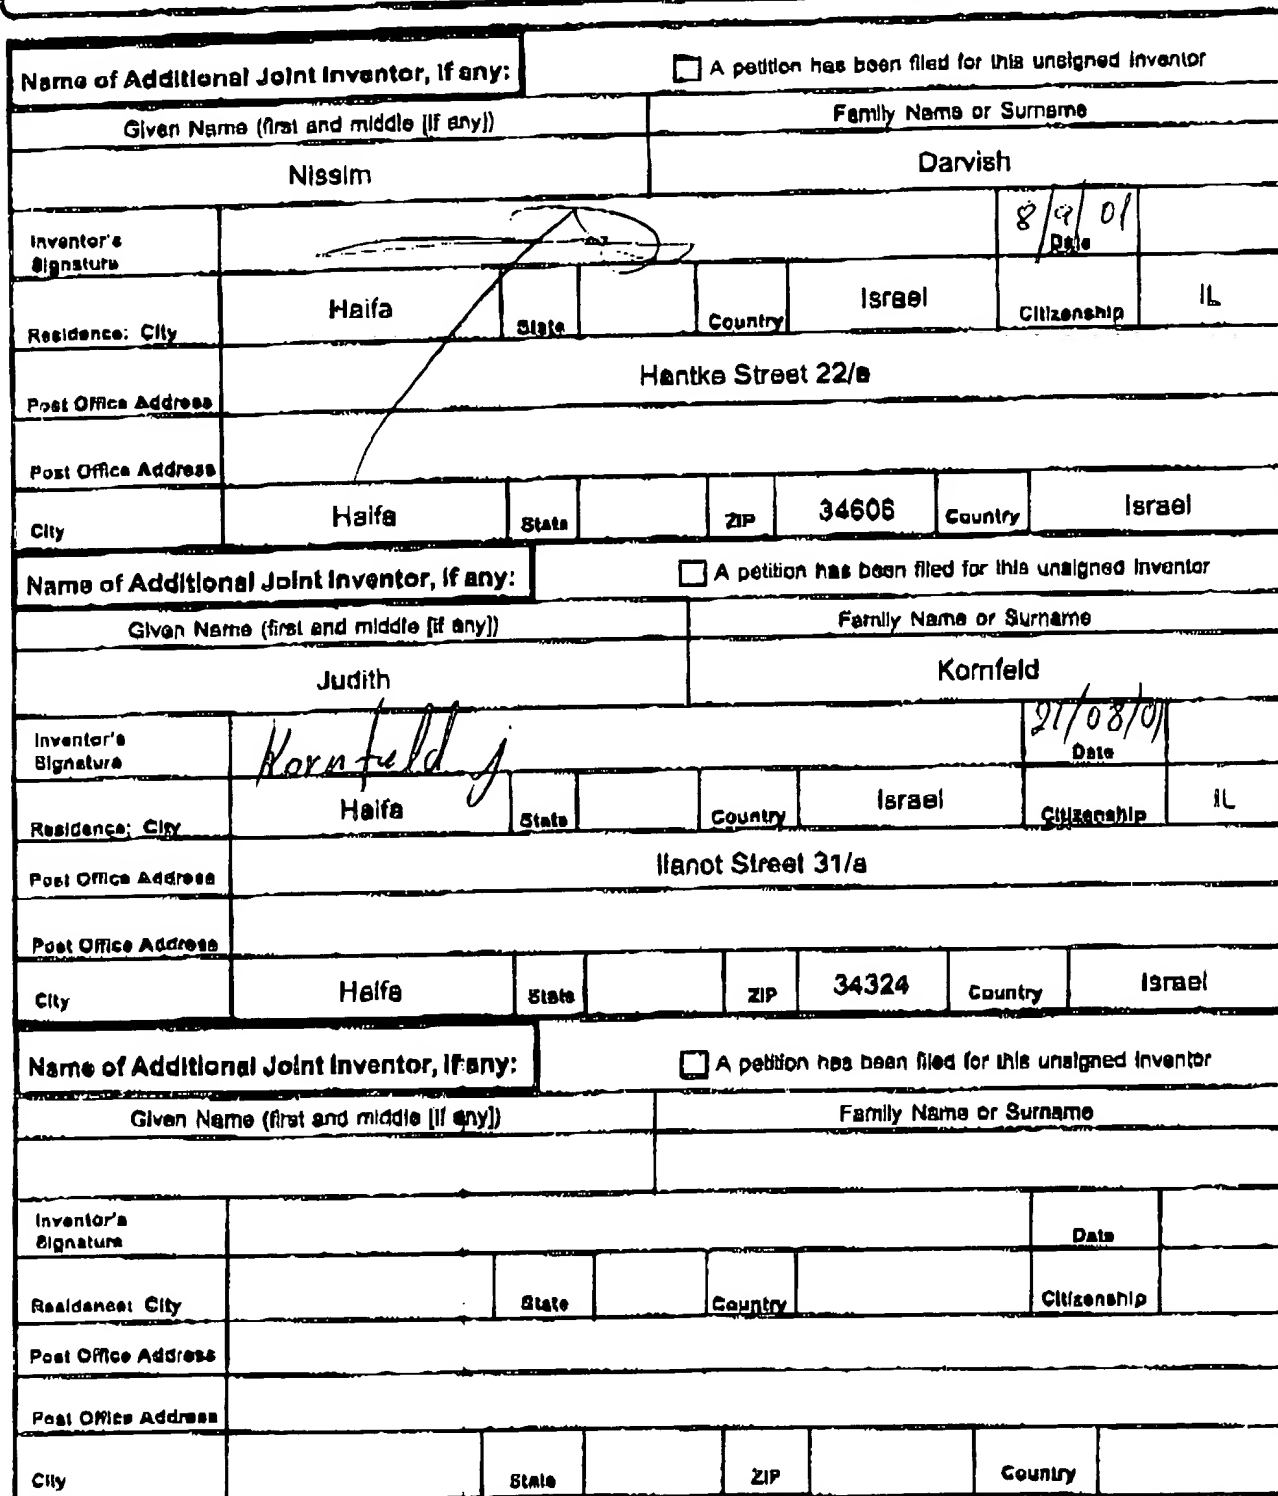 Name of Additional Joint Inventor, if any: A petition has been filed for this unsigned inventor
Given Name (first and middle [if any]) Family Name or Surname
Nissim Darvish
Inventor's Signature 8/9/01 Date
Residence: City Haifa State Country Israel Citizenship IL
Post Office Address Hantke Street 22/a
Post Office Address
City Haifa State ZIP 34606 Country Israel
Name of Additional Joint Inventor, if any: A petition has been filed for this unsigned inventor
Given Name (first and middle [if any]) Family Name or Surname
Judith Kornfeld
Inventor's Signature Kornfeld j 21/08/01 Date
Residence: City Haifa State Country Israel Citizenship IL
Post Office Address Ilanot Street 31/a
Post Office Address
City Haifa State ZIP 34324 Country Israel
Name of Additional Joint Inventor, if any: A petition has been filed for this unsigned inventor
Given Name (first and middle [if any]) Family Name or Surname
Inventor's Signature Date
Residence: City State Country Citizenship
Post Office Address
Post Office Address
City State ZIP Country